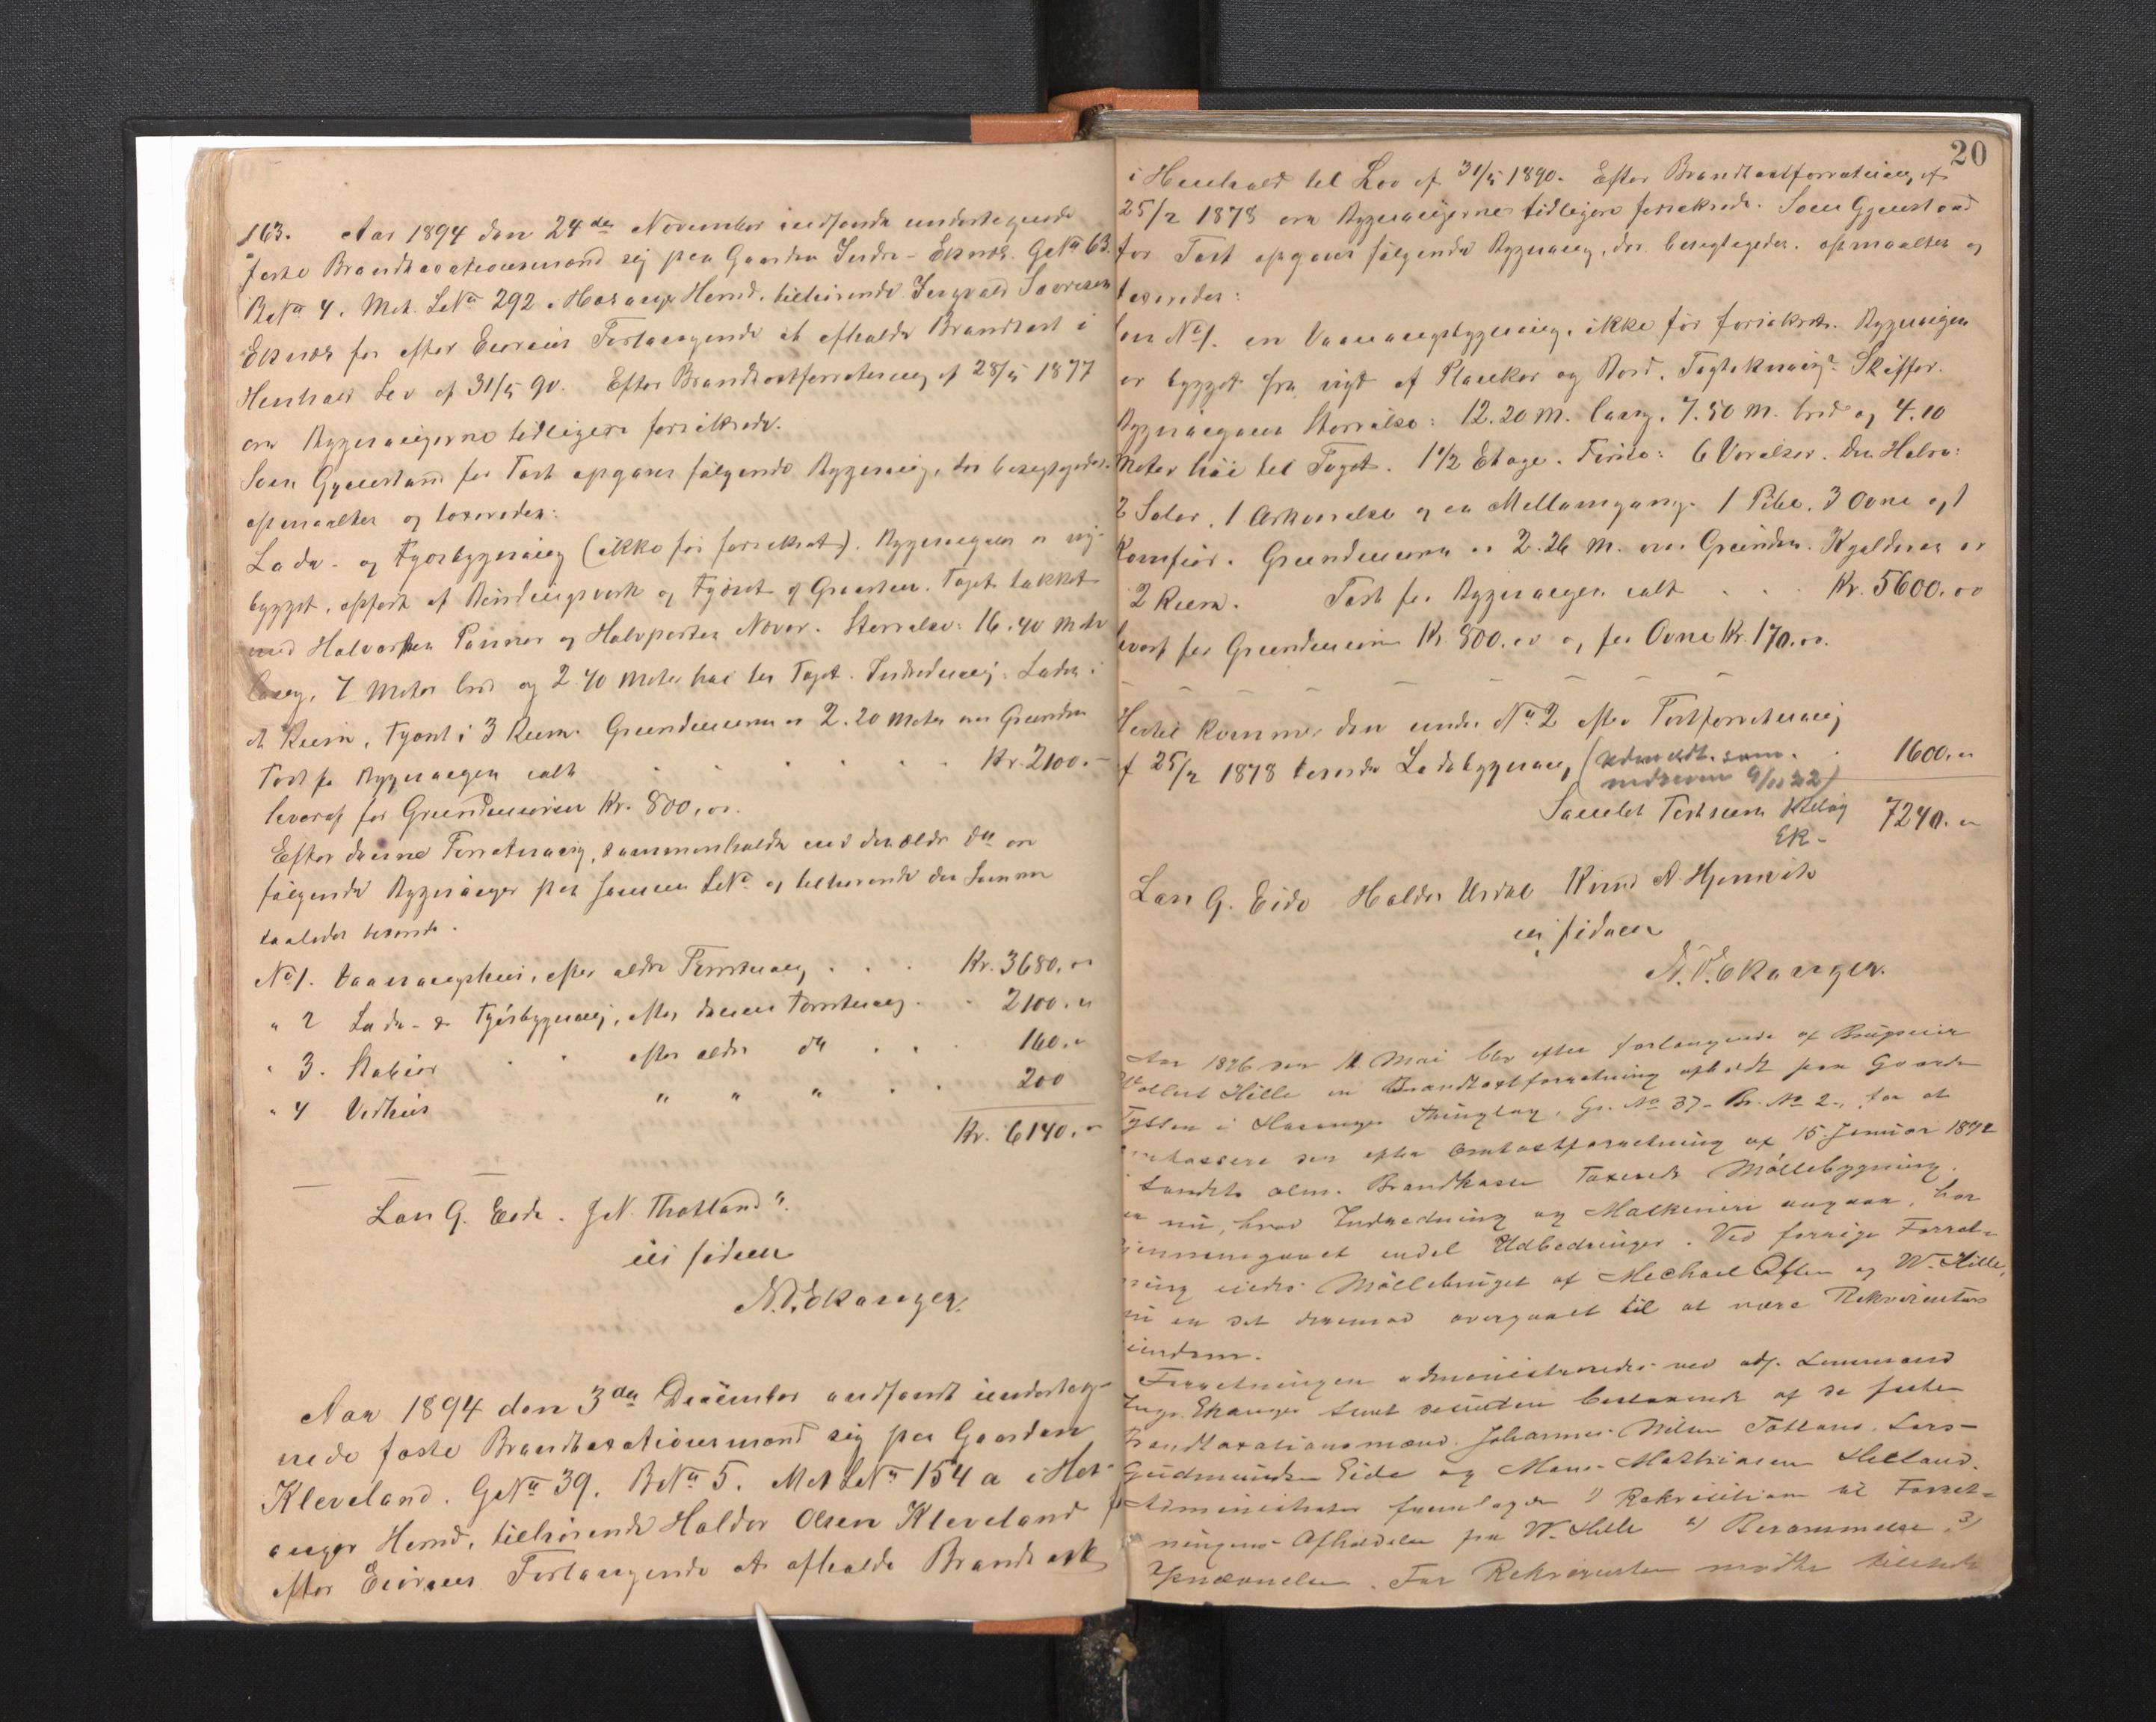 163. Aar 1894 den 24de November indfandt undertegnede
faste Brandtaxationsmænd sig paa Gaarden Indre-Eknæs. GNo 63.
BNo 4. Mat. LNo 292 i Hosanger Herred, tilhørende Ingvald Sørensen
Eknæs for efter Eierens Forlangende at afholde Brandtaxt i
Henhold Lov af 31/5 90. Efter Brandtaxtforretning af 28/5 1877
ere Bygningerne tidligere forsikrede.
Som Gjenstand for Taxt opgaves følgende Bygning, der besigtigedes.
opmaaltes og taxeredes:
Lade- og Fjøsbygning (ikke før forsikret). Bygningen er ny-
bygget, opført af Bindingsverk og Fjøset af Graasten. Taget takket
med Halvparten Panner og Halvparten Næver. Størrelse: 16.40 Meter
lang, 7 Meter bred og 2.40 Meter høi til Taget. Indredning: Laden i
et Rum, Fjøset i 3 Rum. Grundmuren er 2.20 Meter over Grunden
Taxt for Bygningen ialt . . . . . Kr. 2100.-
hvoraf for Grundmuren Kr. 800,00.
Efter denne Forretning, sammenholdt med den ældre dto ere
følgende Bygninger paa samme LNo og tilhørende den samme
saaledes taxerede.
No 1. Vaaningshus, efter ældre Forretning . . . Kr. 3680,00
" 2 Lade- & Fjøsbygning, efter denne Forretning . . 2100.00
" 3. Stabur . . efter ældre dto . . . 160.00
" 4 Vedhus " " " . . 200
Kr. 6140.00
Lars G. Eide. J. N. Thotland
ei sidsten
N. D. Ekanger.
Aar 1894 den 3die December indfandt underteg-
nede faste Brandtaxationsmænd sig paa Gaarden
Kleveland. GNo 39. BNo 5. Mat LNo 154 a i Hos-
anger Herred, tilhørende Haldor Olsen Kleveland for
efter Eierens Forlangende at afholde Brandtaxt
20
i Henhold til Lov af 31/5 1890. Efter Brandtaxtforretning af
25/2 1878 ere Bygningerne tidligere forsikrede. Som Gjenstand
for Taxt opgaves følgende Bygning, der besigtigedes. opmaaltes og
taxeredes:
No 1. en Vaaningsbygning, ikke før forsikret. Bygningen
er bygget fra nyt af Planker og Bord. Tagtækning: Skiffer.
Bygningens Størrelse: 12.20 M. lang, 7.50 M. bred og 4.10
Meter høi til Taget. 1 1/2 Etage. Første: 6 Værelser. Den Halve:
2 Saler, 1 Arkværelse og en Mellemgang. 1 Pibe, 3 Ovne og 1
Komfur. Grundmuren er 2.26 M. over Grunden. Kjelderen er
2 Rum. Taxt for Bygningen ialt . . . Kr. 5600.00
hvoraf for Grundmuren Kr. 800.00 og for Ovne Kr. 170.00.
Hertil kommer den under No 2 efter Taxtforretning
af 25/2 1878 taxerede Ladebygning (udmeldt som . 1600.00
nedreven 9/11 22)
Samlet Taxtsum 7240.00
Lars G. Eide Haldor Urdal Knud A. Hjemvik
ei sidsten
N. D. Ekanger.
Aar 1896 den 11 Mai blev efter forlangende af Brugseier
Wollert Hille en Brandtaxtforretning afholdt paa Gaarden
Tyssen i Hosanger Thinglag, Gr. No 37- Br. No 2-, for at
omtaxere den efter Omtaxtforretning af 15 Januar 1892
i Landets alm. Brandkasse Taxerede Møllebygning.
nu, hvad Indredning og Maskineri angaar, har
gjennemgaaet endel Udbedringer. Ved forrige Forret-
ning eiedes Møllebruget af Mechael Olsen og W. Hille,
nu er det derimod overgaaet til at være Rekvirentens
Eiendom.
Forretningen administreredes ved adj. Lensmand
Ingv. Ekanger samt bestaaende af de faste
Brandtaxationsmænd. Johannes Nilsen Totland, Lars
Gudmundsen Eide og Mons Mathiasen Helland.
Administrator fremlagde 1) Rekvisition til Forret-
ningens Afholdelse fra W. Hille 2) Berammelse 3)
Opnævnelse. For Rekvirenten mødte tilstede